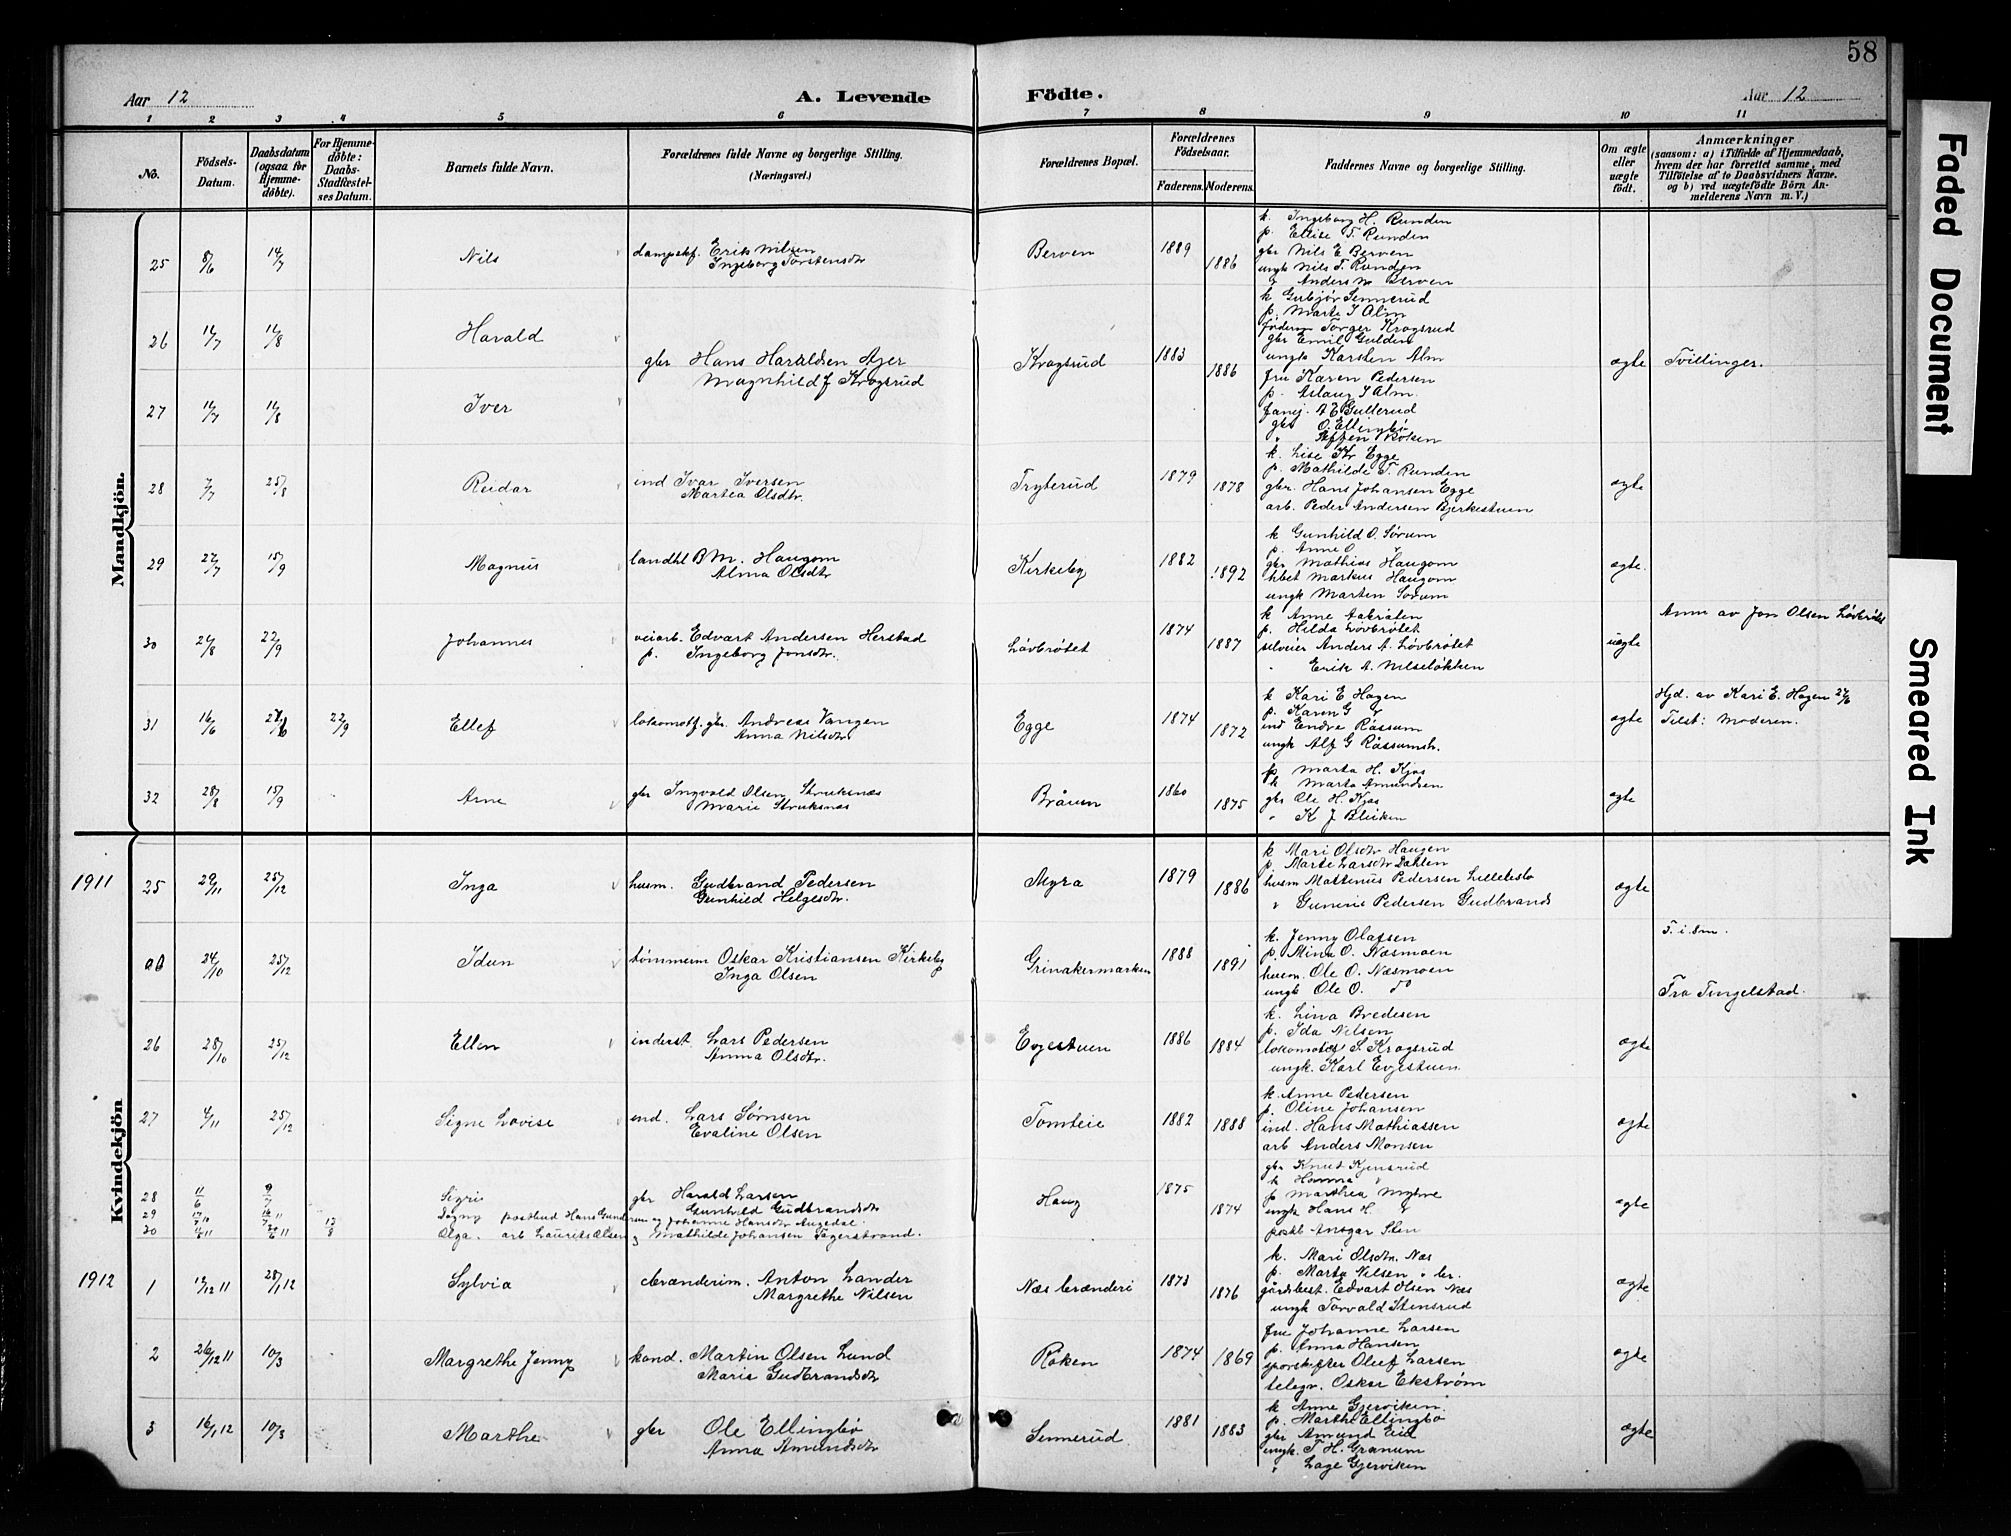 58
Aar 12
A. Levende
Födte.
Aar 12
1 2 3 4 5 6 7 8 9 10 11
No.
Födsels-Datum.
Daabsdatum (ogsaa for Hjemmedöbte).
For Hjemmedöbte: Daabs-Stadfæstelses Datum.
Barnets fulde Navn.
Forældrenes fulde Navne og borgerlige Stilling.
(Næringsvei.)
Forældrenes Bopæl.
Forældrenes Födselsaar.
Faderens. Moderens.
Faddernes Navne og borgerlige Stilling.
Om ægte eller uægte födt.
Anmærkninger
(saasom: a) i Tilfælde af Hjemmedaab, hvem der har forrettet samme, med Tilföielse af to Daabsvidners Navne. og b) ved uægtefödte Börn Anmelderens Navn m. V.)
Mandkjön.
25 8/6 14/7 Nils
dampskf. Erik Nilsen
Ingeborg Torstensdtr
Berven 1889 1886
k. Ingeborg H. Runden
p. Ellise T. Runden
gbr Nils E Berven
ungk Nils T. Runden
" Anders N Berven
26 14/7 11/8 Harald
gbr Hans Haraldsen Ajer
Magnhild J Krogsrud
Krogsrud 1883 1886
k Gubjør Sennerud
p. Marte I Alm
føderm Torger Krogsrud
gbr Emil Gulden
ungk Karsten Alm
ægte Tvillinger.
27 14/7 11/8 Iver
fru Karen Pedersen
p. Aslaug I Alm
famj. A E Gullerud
gbr O. Ellingbø
" Steffen Røken
28 7/7 25/8 Reidar
ind Ivar Iversen
Martea Olsdtr.
Tryterud 1879 1878
k. Lise Kr Egge
p. Mathilde T. Runden
gbr. Hans Johansen Egge
arb. Peder Andersen Bjerkestuen
ægte
29 27/7 15/9 Magnus
landhl B M. Haugom
Alma Olsdtr
Kirkeby 1882 1892
k Gunhild O. Sørum
p. Anne O
gbr Mathias Haugom
Markus Haugom
ungk Marten Sørum
ægte.
30 24/8 22/9 Johannes
veiarb. Edvart Andersen Herstad
p. Ingeborg Jonsdtr.
Løvbrøtet 1874 1887
k Anne Aabråten
p. Hilda Løvbrøtet
selveier Anders A. Løvbrøtet
" Erik A. Nilseløkken
uægte
Anm av Jon Olsen Løvbrøtet
31 16/6 22/9 Ellef
lokomotf. gbr. Andreas Vangen
Anna Nilsdtr
Egge 1874 1872
k Kari E Hagen
p. Karen G "
ind Endre Røssum
ungk Alf G Røssumsh.
ægte
Hjd. av Kari E. Hagen 27/6
Tilst: Moderen.
32 28/8 15/9 Arne
gbr Ingvald Olsen Struksnæs
Marie Struksnæs
Bråten 1860 1875
p. Marta H. Kjos
k Marta Amundsen
gbr Ole H. Kjos
" K J Bleiken
ægte
Kvindekjön
1911
25 29/11 25/12 Inga
husm. Gudbrand Pedersen
Gunhild Helgesdtr.
Myra 1879 1886
k Mari Olsdtr Haugen
p. Marte Larsdtr Dahlen
husm Mattinus Pedersen Lillebo
" Gunerius Pedersen Gudbrands
ægte
24/10 25/12 Idun
tømmerm Oskar Kristiansen Kirkeby
Inga Olsen
Grinakermarken 1888 1891
k. Jenny Olafsen
p. Mina O. Næsmoen
husm. Ole O. Næsmoen
ungk Ole O. do
F. i 8m.
Fra Tingelstad.
26 28/10 25/12 Ellen
inderst Lars Pedersen
Anna Olsdtr.
Evjestuen 1886 1884
k. Lina Bredesen
p. Ida Nilsen
lokomotf S. Krogsrud
ungk. Karl Evjestuen
ægte
27 4/11 25/12 Signe Lovise
ind. Lars Sørnsen
Evaline Olsen
Tomteie 1882 1888
k. Anne Pedersen
p. Oline Johansen
ind. Hans Mathiassen
arb Anders Monsen
ægte
28 11/6 9/7 Sigrid
gbr Harald Larsen
Gunhild Gudbrandsdtr
Haug 1875 1874
gbr Knut Kjensrud
k Hanna "
p Marthea Myhre
ungk Hans H. "
postb Ansgar Sten
ægte
29 Dagny postbud Hans Gundersen og Johanne Hansdtr Augedal.
30 Olga. arb Laurits Olsen og Mathilde Johansen Fagerstrand.
1912
1 12/12 11 28/1 12 Sylvia
brænderim. Anton Lander
Margrethe Nilsen
Næs brænderi 1873 1876
k. Mari Olsdtr. Næs
p. Marta Nilsen " br.
gårdsbest. Edvart Olsen Næs
ungk Torvald Stensrud
ægte
2 26/12 11 10/3 Margrethe Jenny
kond. Martin Olsen Lund
Marie Gudbrandsdtr
Røken 1874 1869
fru Johanne Larsen
p. Anna Hansen
sporskifter Oluf Larsen
telegr. Oskar Ekstrøm
ægte
3 16/1 12 10/3 Marthe
gbr Ole Ellingbø
Anna Amundsdtr
Sennerud 1881 1883
k Anne Gjerviken.
p. Marthe Ellingbø
gbr Amund Eid
ungk. T H. Granum
" Lage Gjerviken
ægte
Faded Document
Smeared Ink